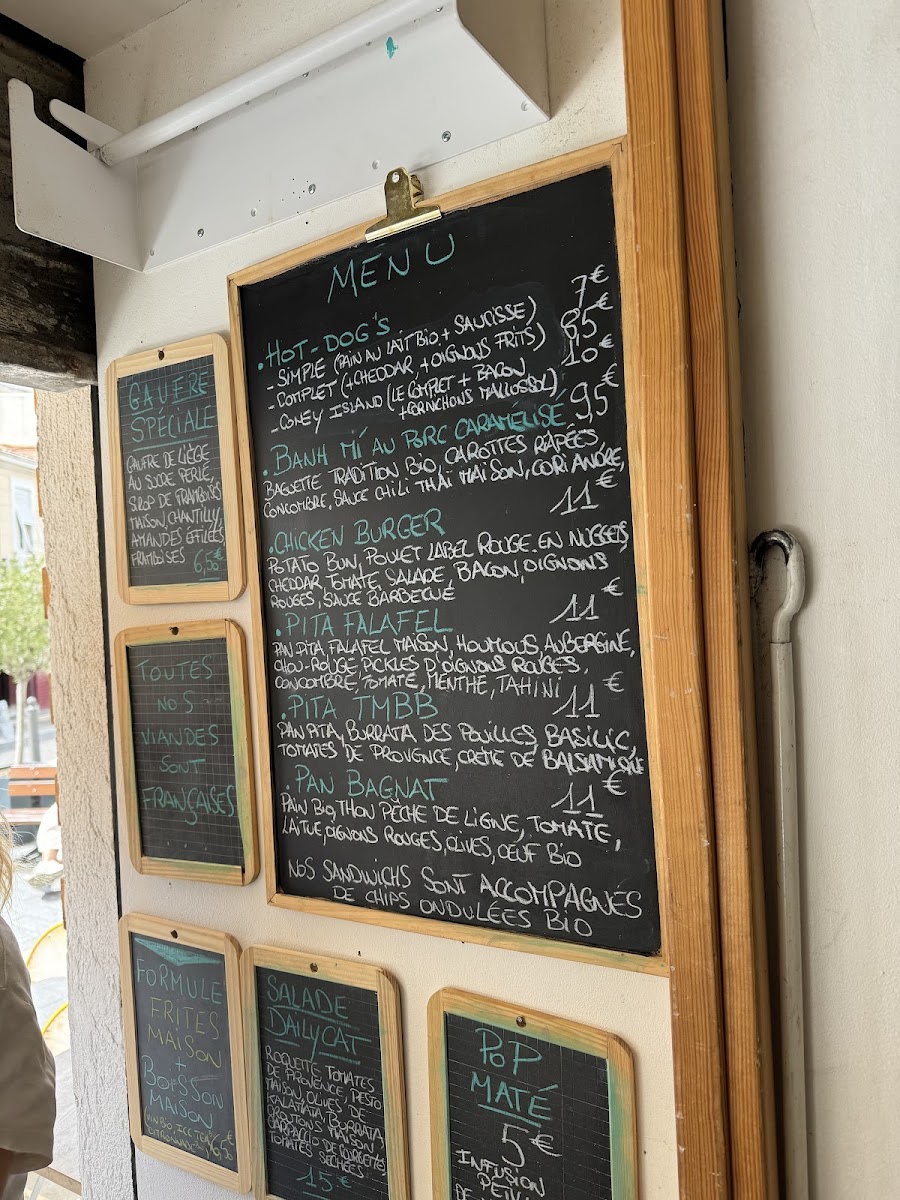 MENU
• HOT-DOG'S
- SIMPLE (PAIN AU LAIT BIO + SAUCISSE) 7€
- COMPLET (+ CHEDDAR, + OIGNONS FRITS) 8,5€
- CONEY ISLAND (LE COMPLET + BACON 10€
+ CORNICHONS MALLOSSOL)
• BANH MÍ AU PORC CARAMELISÉ 9,5€
BAGUETTE TRADITION BIO, CAROTTES RAPÉES,
CONCOMBRE, SAUCE CHILI THAÏ MAISON, CORIANDRE,
• CHICKEN BURGER 11€
POTATO BUN, POULET LABEL ROUGE EN NUGGETS,
CHEDDAR TOMATE, SALADE, BACON, OIGNONS
ROUGES, SAUCE BARBECUE
• PITA FALAFEL 11€
PAN PITA, FALAFEL MAISON, HOUMOUS, AUBERGINE,
CHOU-ROUGE, PICKLES D'OIGNONS ROUGES,
CONCOMBRE, TOMATE, MENTHE, TAHINI
• PITA TMBB 11€
PAN PITA, BURRATA DES POUILLES, BASILIC,
TOMATES DE PROVENCE, CRÈME DE BALSAMIQUE
• PAN BAGNAT 11€
PAIN BIO, THON PÊCHE DE LIGNE, TOMATE,
LAITUE, OIGNONS ROUGES, OLIVES, OEUF BIO
NOS SANDWICHS SONT ACCOMPAGNÉS
DE CHIPS ONDULÉES BIO
GAUFRE
SPÉCIALE
GAUFRE DE LIÈGE
AU SUCRE PERLÉ,
SIROP DE FRAMBOISES
MAISON, CHANTILLY,
AMANDES EFFILÉES,
FRAMBOISES 6,5€
TOUTES
NOS
VIANDES
SONT
FRANÇAISES
FORMULE
FRITES
MAISON
+
BOISSON
MAISON
ICE TEA
SALADE
DAILYCAT
ROQUETTE, TOMATES
DE PROVENCE, PESTO
MAISON, OLIVES DE
KALAMATA, BURRATA,
CROUTONS MAISON,
CARPACCIO DE COURGETTE,
TOMATES SÉCHÉES
15€
POP
MATÉ
5€
INFUSION